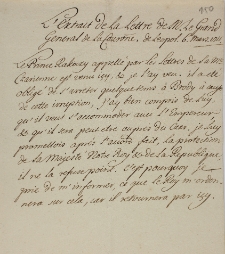 L'Extrait de la Lettre de Mr. Le Grand
General de la Couronne, de Leopol. 6. Mars
Le Prince Rakocy appellé par les Lettres de la
Czarienne est venu icy. Je l'ay veu, il a esté
obligé de s'arreter quelque tems à Brody à
cette irruption. J'ay bien compris de luy
qu'il veut s'accommoder avec l'Empereur
et qu'il sera peut etre aupres du Czar, je luy
promettois après l'avoir fait, la protection
de la Majesté Notre Roy et de la Republique,
il ne la refuse point. C'est pourquoy je
prie de m'informer, ce que le Roy m'ordon-
nera sur cela, car il retournera par icy.